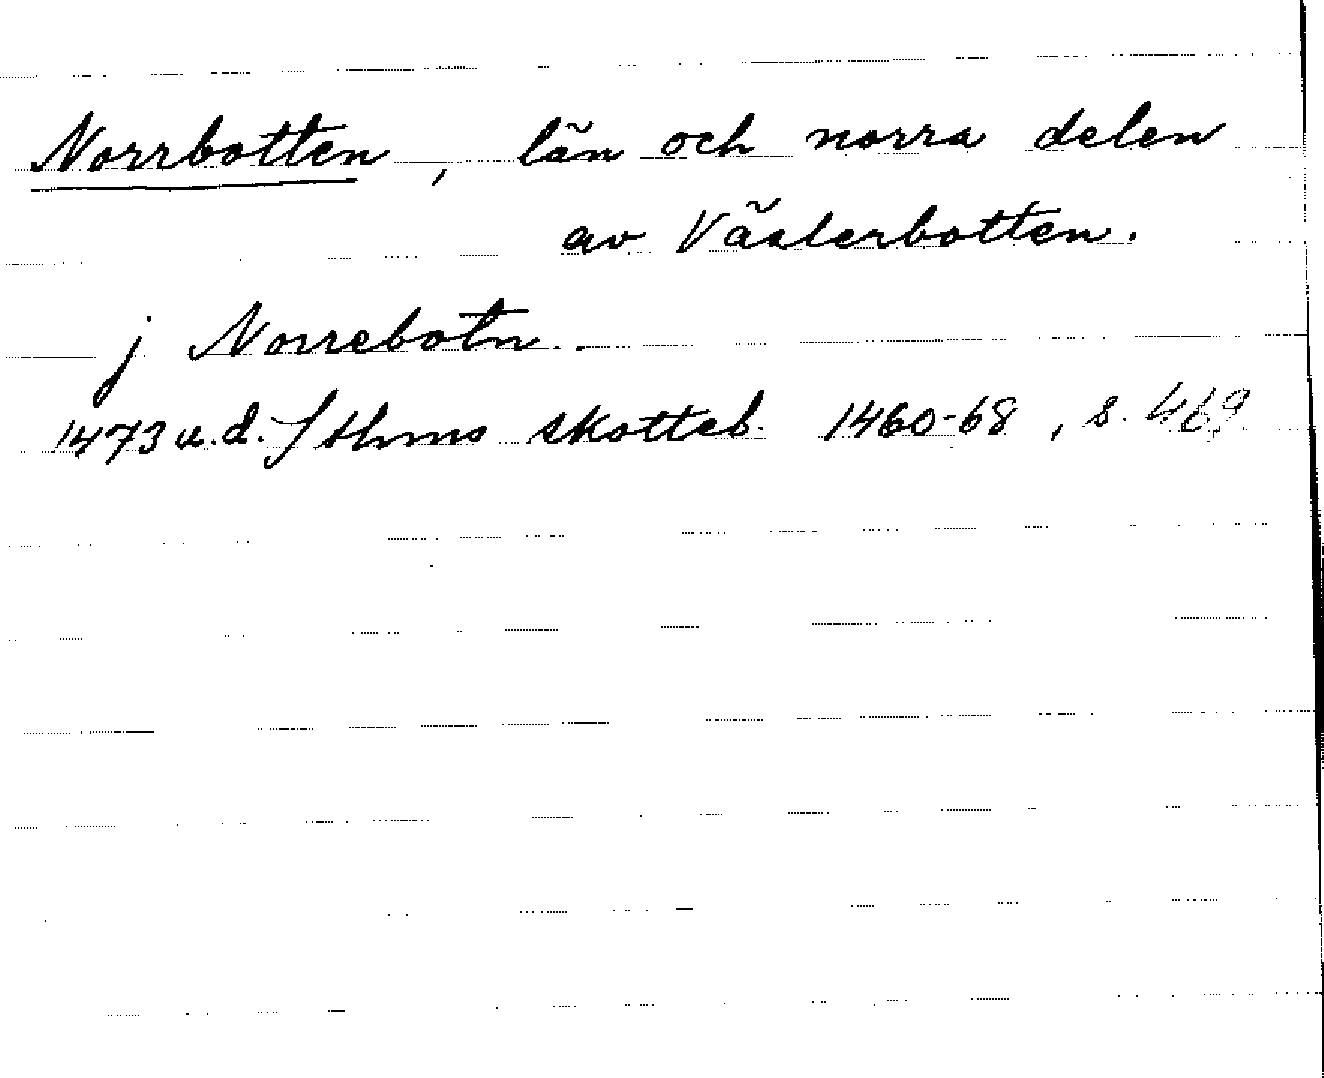 Norrbotten, län och norra delen
av Västerbotten.
j Norrebotn.
1473 u.d. Sthms skotteb. 1460-68, s. 469